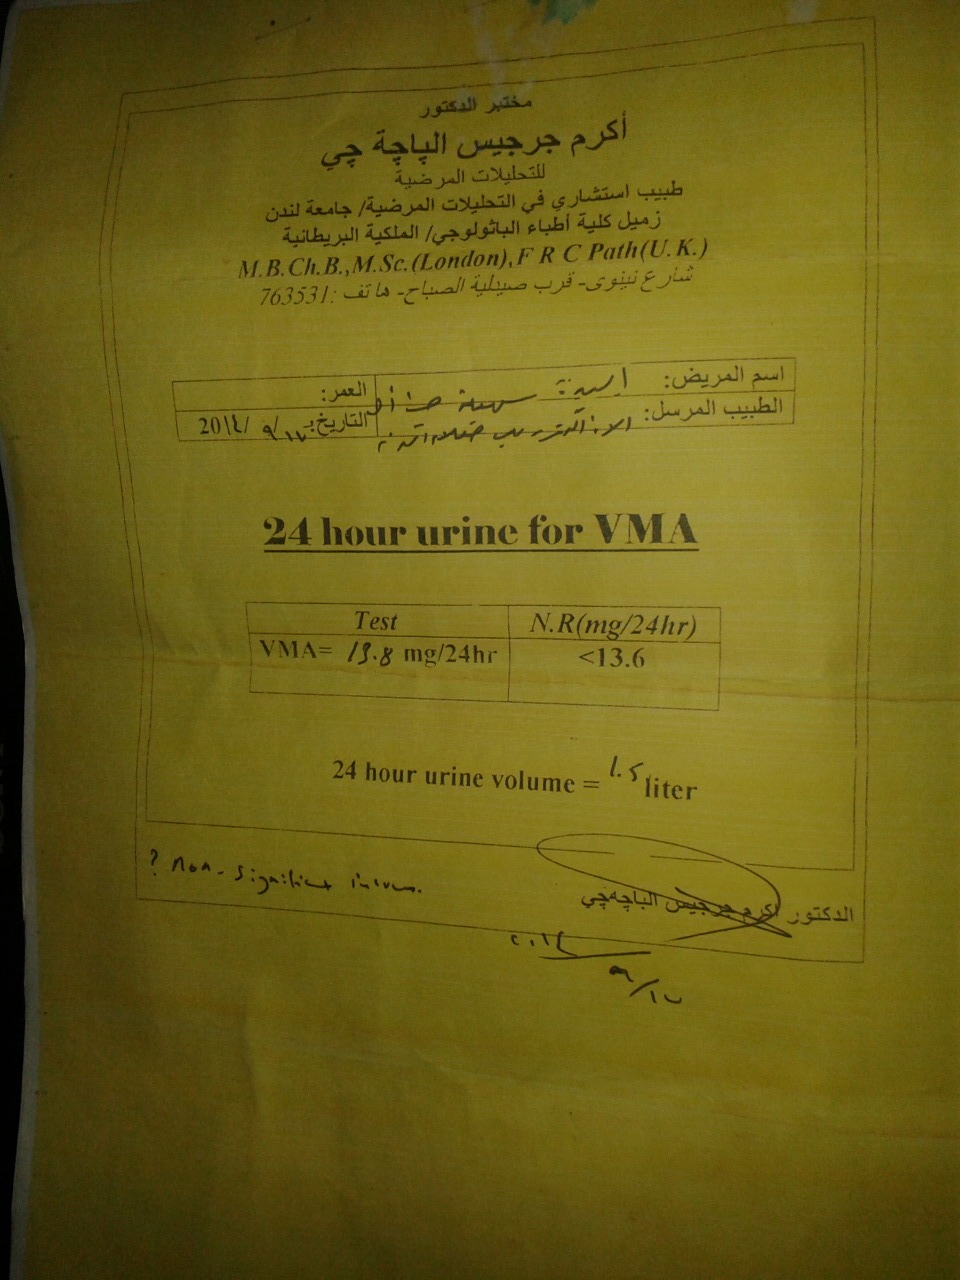 مختبر الدكتور
أكرم جرجيس الپاچة چي
للتحليلات المرضية
طبيب استشاري في التحليلات المرضية/ جامعة لندن
زميل كلية أطباء الباثولوجي/ الملكية البريطانية
M.B.Ch.B.,M.Sc.(London),F R C Path(U.K.)
شارع نينوى- قرب صيدلية الصباح- هاتف :763531
اسم المريض: السيدة العمر:
الطبيب المرسل: التاريخ: ١٧/ ٩/ 20١٤
24 hour urine for VMA
Test N.R(mg/24hr)
VMA= 13.8 mg/24hr <13.6
24 hour urine volume = 1.5 liter
? Non-significant
الدكتور أكرم جرجيس الباچەچي
٢٠١٤
٩/١٧